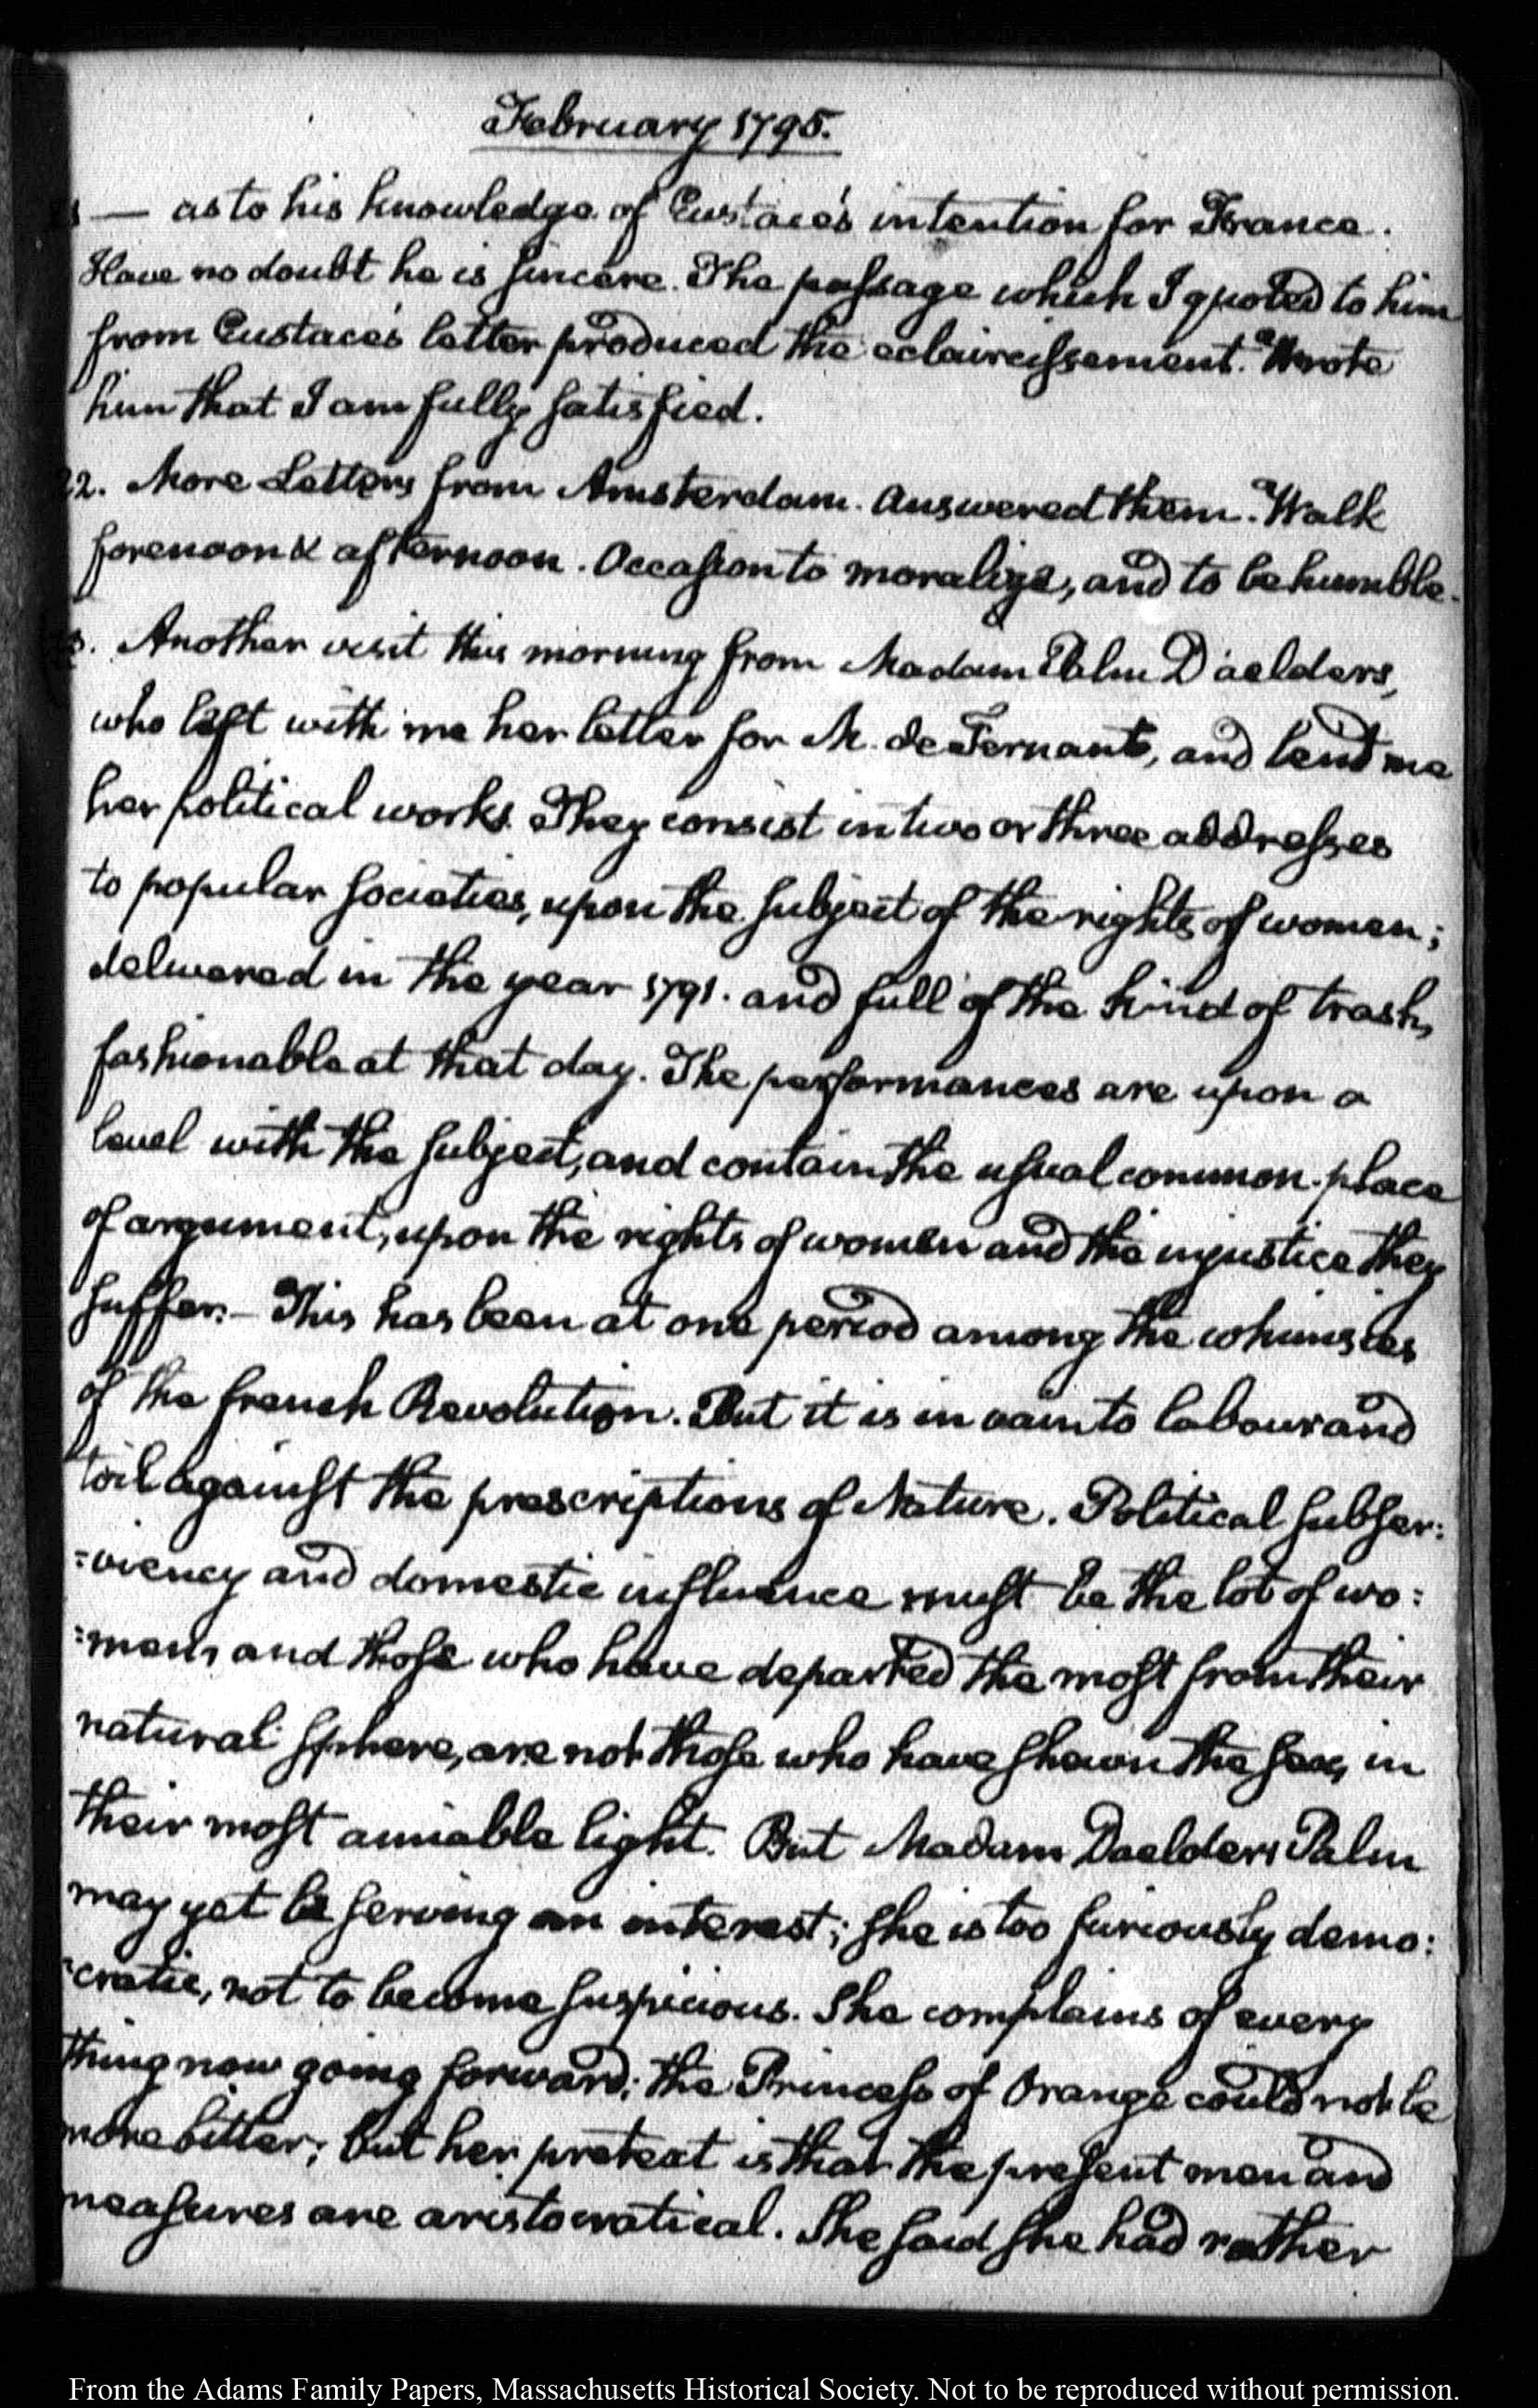 February 1795.
— as to his knowledge of Eustace's intention for France.
Have no doubt he is sincere. The passage which I quoted to him
from Eustace's letter produced the eclaircissement. Wrote
him that I am fully satisfied.
22. More Letters from Amsterdam. Answered them. Walk
forenoon & afternoon. Occasion to moralize, and to be humble.
Another visit this morning from Madam Palm D'aelders,
who left with me her letter for M. de Ternant, and lend me
her political works. They consist in two or three addresses
to popular societies, upon the subject of the rights of women;
delivered in the year 1791. and full of the kind of trash,
fashionable at that day. The performances are upon a
level with the subject, and contain the usual common-place
of argument, upon the rights of women and the injustice they
suffer.— This has been at one period among the whimsies
of the french Revolution. But it is in vain to labour and
toil against the prescriptions of Nature. Political subser:
:viency and domestic influence must be the lot of wo:
:men, and those who have departed the most from their
natural sphere, are not those who have shewn the sex, in
their most amiable light. But Madam Daelders Palm
may yet be serving an interest; she is too furiously demo:
:cratic, not to become suspicious. She complains of every
thing now going forward; the Princess of Orange could not be
more bitter; but her pretext is that the present men and
measures are aristocratical. She said she had rather
From the Adams Family Papers, Massachusetts Historical Society. Not to be reproduced without permission.